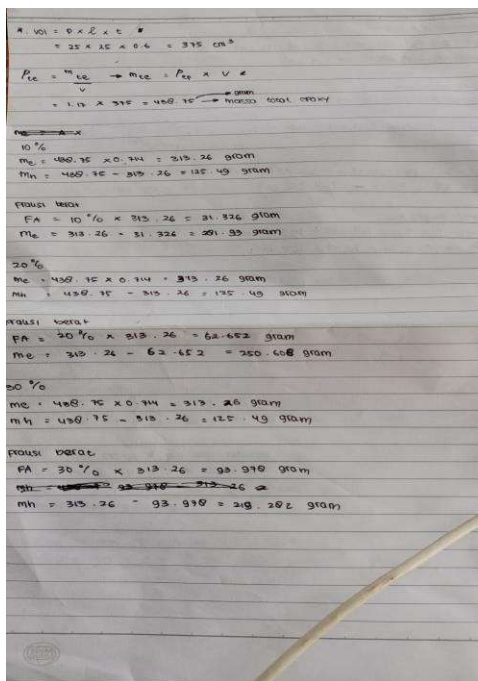 *. Vol = P x l x t
= 25 x 25 x 0.6 = 375 cm³
ρte = mte / V → mte = ρep x V
= 1.17 x 375 = 438.75 gram → massa total epoxy
10 %
me = 438.75 x 0.714 = 313.26 gram
mh = 438.75 - 313.26 = 125.49 gram
Fraksi berat
FA = 10 % x 313.26 = 31.326 gram
me = 313.26 - 31.326 = 281.93 gram
20 %
me = 438.75 x 0.714 = 313.26 gram
mh = 438.75 - 313.26 = 125.49 gram
Fraksi berat
FA = 20 % x 313.26 = 62.652 gram
me = 313.26 - 62.652 = 250.608 gram
30 %
me = 438.75 x 0.714 = 313.26 gram
mh = 438.75 - 313.26 = 125.49 gram
Fraksi berat
FA = 30 % x 313.26 = 93.978 gram
mh = 313.26 - 93.978 = 219.282 gram